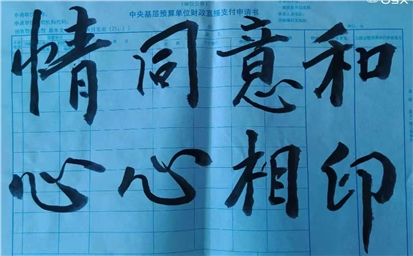 中央基层预算单位财政直接支付申请书
情同意和
心心相印